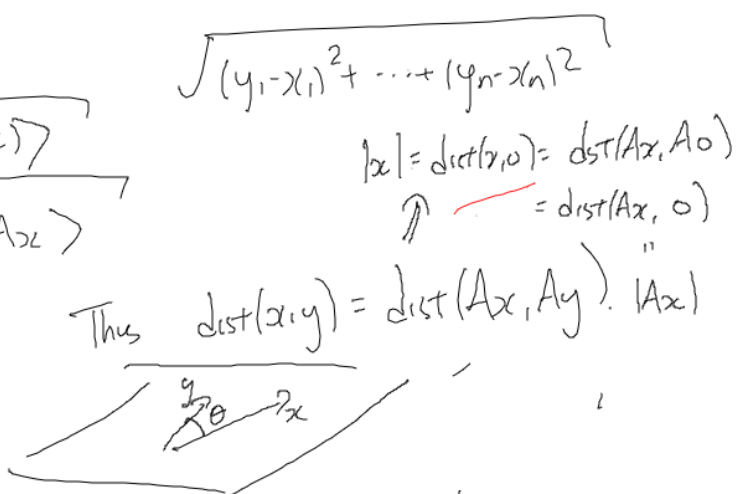 √((y₁-x₁)²+ ⋯ + (yₙ-xₙ)²)
)>
|x| = dist(x,0) = dist(Ax, A0)
Ax >
= dist(Ax, 0)
"
Thus dist(x,y) = dist(Ax, Ay). |Ax|
y θ x